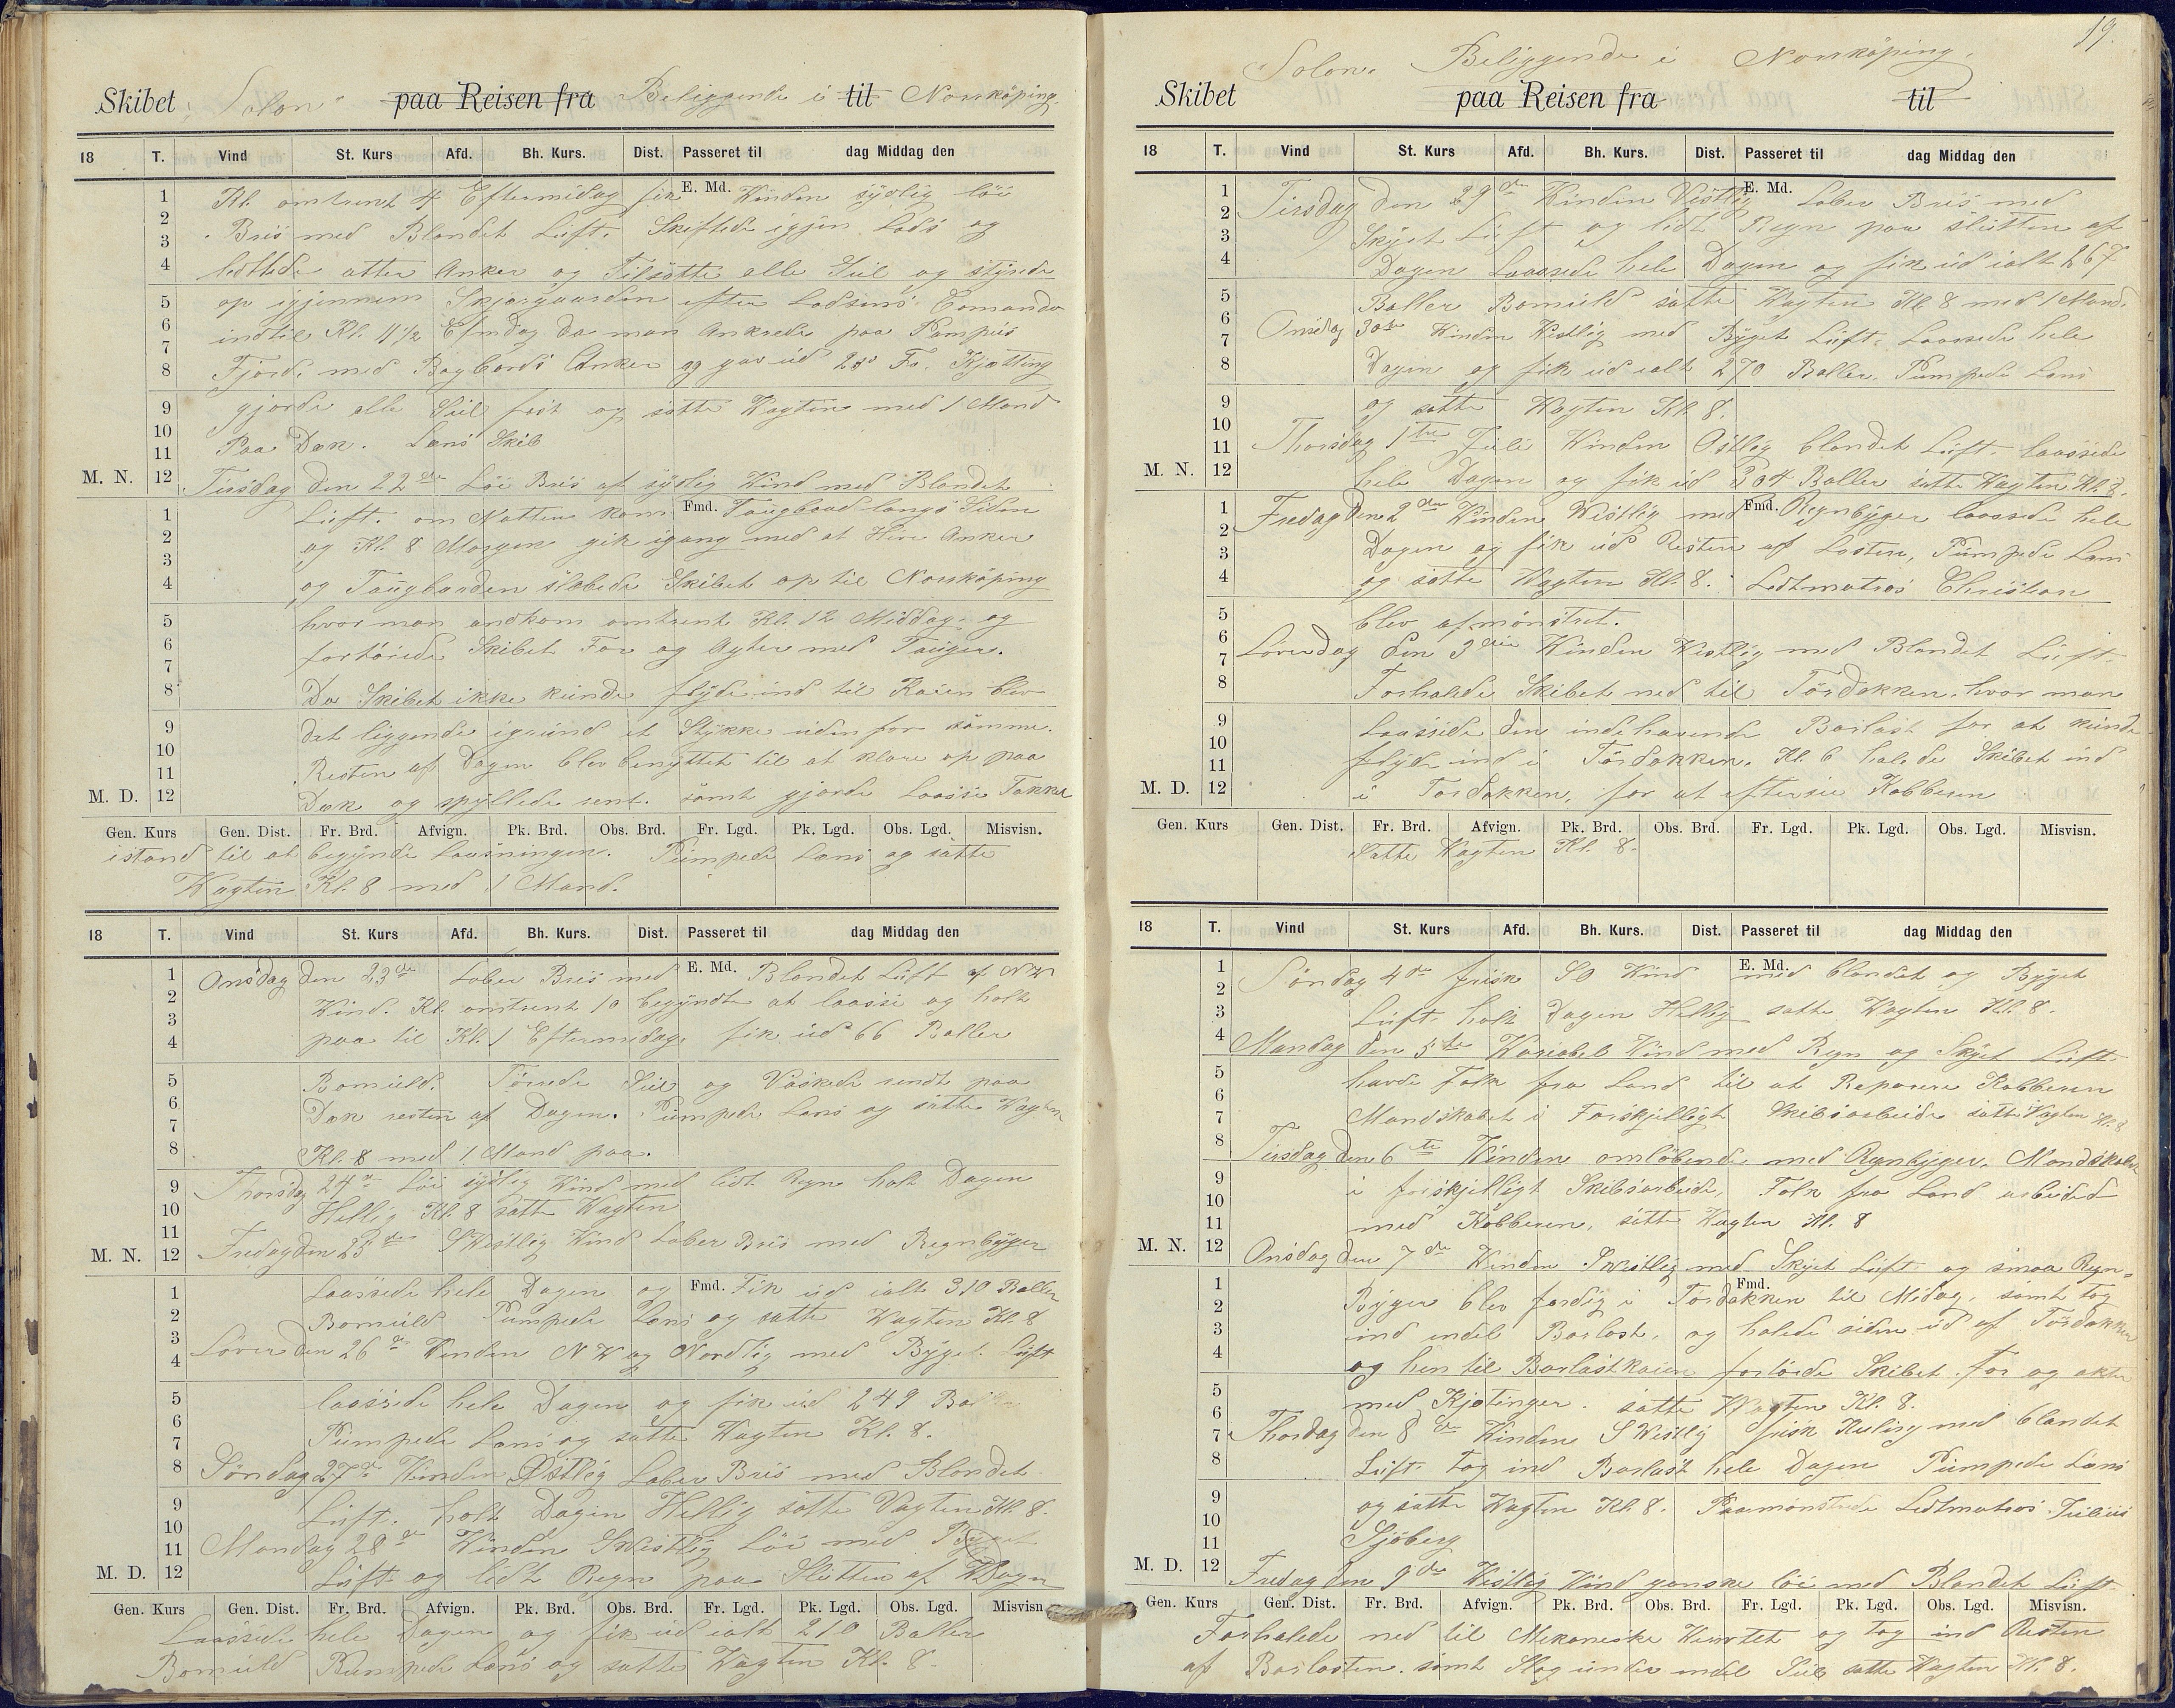 Skibet "Solon" paa Reisen fra Beliggende i til Norrköping.
18 T. Vind St. Kurs Afd. Bh. Kurs. Dist. Passeret til dag Middag den
E. Md.
1 Kl. omtrent 4 Eftermidag fik Vinden sydlig löi
2 Bris med Blandet Luft. Skiftede igjen Lods og
3
4 lettede atter Anker og Tilsatte alle Seil og styrede
5 op igjennem Skjærgaarden efter Lodsens Comando
6 indtil Kl. 11 1/2 Efmdag da man Ankrede paa Pampus
7
8 Fjord. med Bagbords Anker og gav ud 20 Fv. Kjætting
9 gjorde alle Seil fast og satte Vagten med 1 Mand
10
11 Paa Dæk. Læns Skib
M. N. 12 Tirsdag den 22de Löi Bris af sydlig Vind med Blandet
1 Luft. om Natten kom Fmd. Taugbaad langs Siden
2 og Kl. 8 Morgen gik igang med at Hive Anker
3
4 og Taugbaaden slæbede Skibet op til Norrköping
5 hvor man andkom omtrent Kl. 12 Middag. og
6 fortöiede Skibet For og Agter med Touger.
7
8 Da Skibet ikke kunde flyde ind til Kaien blev
9 det liggende igrund et Stykke uden for samme.
10 Resten af Dagen blev benyttet til at klare op paa
11
M. D. 12 Dæk og spyllede rent. samt gjorde Laasse Takkel
Gen. Kurs Gen. Dist. Fr. Brd. Afvign. Pk. Brd. Obs. Brd. Fr. Lgd. Pk. Lgd. Obs. Lgd. Misvisn.
istand til at begynde Laasningen. Pumpede Læns og satte
Vagten Kl. 8 med 1 Mand.
18 T. Vind St. Kurs Afd. Bh. Kurs. Dist. Passeret til dag Middag den
E. Md.
1 Onsdag den 23de Laber Bris med Blandet Luft af NW
2 Vind. Kl. omtrent 10 begyndte at laasse og holt
3
4 paa til Kl. 1 Eftermidag fik ud 66 Baller
5 Bomuld. Törrede Seil og Vaskede rendt paa
6 Dæk resten af Dagen. Pumpede Læns og satte Vagten
7
8 Kl. 8 med 1 Mand paa.
9 Thorsdag 24de Löi sydlig Vind med lidt Regn holt Dagen
10 Hellig Kl. 8 satte Vagten
11
M. N. 12 Fredag den 25de SVestlig Vind Laber Bris med Regnbyger
1 Laassede hele Dagen og Fmd. Fik ud ialt 310 Baller
2 Bomuld Pumpede Læns og satte Vagten Kl 8
3 Löver den 26de Vinden NW og Nordlig med Byget Luft
4
5 laassede hele Dagen og fik ud 249 Baller
6
7 Pumpede Læns og satte Vagten Kl. 8.
8 Söndag 27de Vinden Østlig Laber Bris med Blandet
9 Luft. holt Dagen Hellig satte Vagten Kl. 8.
10
11 Mandag 28de Vinden SVestlig Löi med Byget
M. D. 12 Luft og lidt Regn paa Slutten af Dagen
Gen. Kurs Gen. Dist. Fr. Brd. Afvign. Pk. Brd. Obs. Brd. Fr. Lgd. Pk. Lgd. Obs. Lgd. Misvisn.
Laassede hele Dagen og fik ud ialt 210 Baller
Bomuld Pumpede Læns og satte Vagten Kl. 8.
19.
Skibet "Solon" paa Reisen fra Beliggende i til Norrköping.
18 T. Vind St. Kurs Afd. Bh. Kurs. Dist. Passeret til dag Middag den
E. Md.
1 Tirsdag den 29de Vinden Vestlig Laber Bris med
2
3 Skyet Luft og lidt Regn paa slutten af
4 Dagen Laassede hele Dagen og fik ud ialt 267
5 Baller Bomuld satte Vagten Kl. 8 med 1 Mand.
6 Onsdag 30te Vinden Vestlig med Byget Luft. Laassede hele
7
8 Dagen og fik ud ialt 270 Baller. Pumpede Læns
9 og satte Vagten Kl. 8.
10
11 Thorsdag 1ste Juli Vinden Ostlig blandet Luft. Laassede
M. N. 12 hele Dagen og fik ud 204 Baller satte Vagten Kl. 8.
1 Fredag Den 2den Vinden Vestlig med Fmd. Regnbyger laassede hele
2
3 Dagen og fik ud Resten af Lasten, Pumpede Læns
4 og satte Vagten Kl. 8. Letmatros Christian
5 blev afmönstret.
6
7 Löverdag den 3die Vinden Vestlig med Blandet Luft.
8 Forhalede Skibet ned til Tördokken. hvor man
9 Laassede den indehavende Barlast for at kunde
10
11 flyde ind i Tördokken. Kl. 6 halede Skibet ind
M. D. 12 i Tördokken, for at efterse Kobberen
Gen. Kurs Gen. Dist. Fr. Brd. Afvign. Pk. Brd. Obs. Brd. Fr. Lgd. Pk. Lgd. Obs. Lgd. Misvisn.
Satte Vagten Kl. 8.
18 T. Vind St. Kurs Afd. Bh. Kurs. Dist. Passeret til dag Middag den
E. Md.
1 Söndag 4de frisk SO Vind med blandet og Byget
2
3 Luft. holt Dagen Hellig satte Vagten Kl. 8.
4 Mandag den 5te Variabel Vind med Regn og Skyet Luft
5 havde Folk fra Land til at Reparere Kobberen
6
7 Mandskabet i Forskjelligt Skibsarbeide satte Vagten Kl. 8
8 Tirsdag den 6te Vinden omlöbende med Regnbyger. Mandskabet
9 i forskjelligt Skibsarbeide, Folk fra Land arbeided
10
11 med Kobberen, satte Vagten Kl. 8
M. N. 12 Onsdag den 7de Vinden SVestlig med Skyet Luft og smaa Regn-
1 Fmd.
2 Byger blev færdig i Tördokken til Midag, samt tog
3 ind endel Barlast, og halede siden ud af Tördokken
4 og hen til Barlastkaien fortöiede Skibet for og akter
5 med Kjætinger. satte Vagten Kl. 8.
6
7 Thorsdag den 8de Vinden SVestlig frisk Kuling med blandet
8 Luft. Tog ind Barlast hele Dagen Pumpede Læns
9 og satte Vagten Kl. 8. Paamönstrede Letmatros Julius
10
11 Sjöberg
M. D. 12 Fredag den 9de Vestlig Vind ganske löi med Blandet Luft
Gen. Kurs Gen. Dist. Fr. Brd. Afvign. Pk. Brd. Obs. Brd. Fr. Lgd. Pk. Lgd. Obs. Lgd. Misvisn.
Forhalede ned til Mekaniske Værstet og tog ind Resten
af Barlasten. samt Slog under endel Seil satte Vagten Kl. 8.